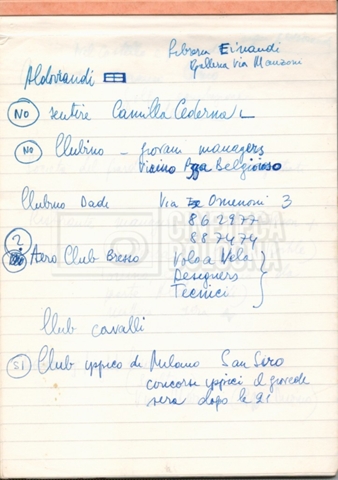 Libreria Einaudi
Galleria via Manzoni
Aldovrandi
NO sentire Camilla Cederna
NO Clubino - giovani managers
Vicino Pzza Belgioioso
Clubino Dadi Via Omenoni 3
862977
887474
?
Aereo Club Bresso Volo a Vela
Designers
Tecnici
Club cavalli
SI Club yppico di Milano San Siro
concorsi yppici il giovedì
sera dopo le 21
CINETECA
BOLOGNA